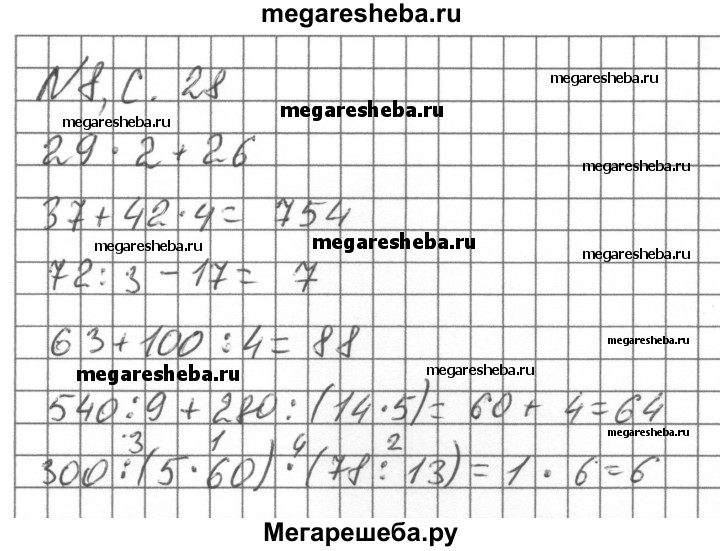 megaresheba.ru
N8, с. 28
megaresheba.ru
megaresheba.ru
megaresheba.ru
29 · 2 + 26
megaresheba.ru
37 + 42 · 4 = 754
megaresheba.ru
megaresheba.ru
megaresheba.ru
72 : 3 - 17 = 7
63 + 100 : 4 = 88
megaresheba.ru
megaresheba.ru
megaresheba.ru
540 : 9 + 280 : (14 · 5) = 60 + 4 = 64
megaresheba.ru
3 1 4 2
300 : (5 · 60) · (78 : 13) = 1 · 6 = 6
Мегарешеба.ру